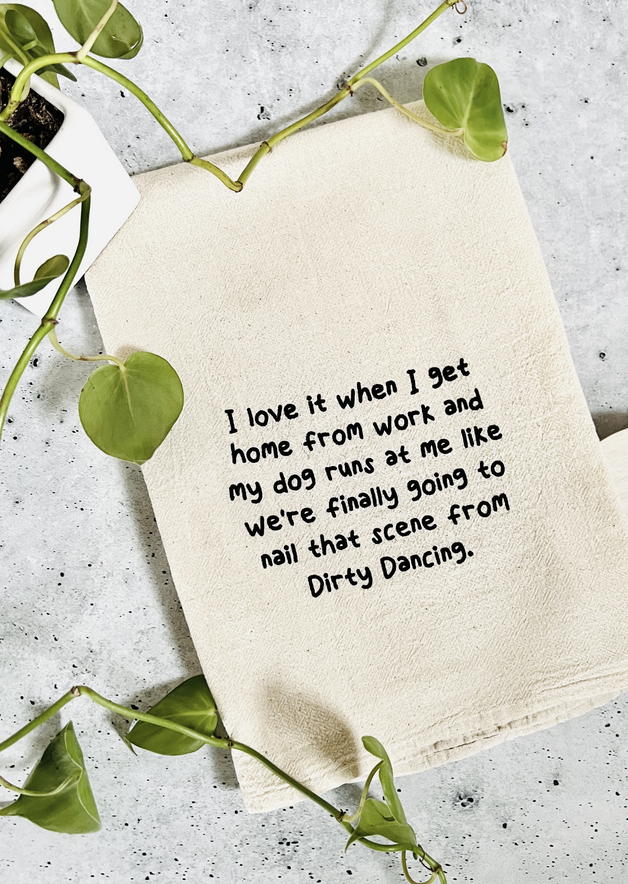 I love it when I get
home from work and
my dog runs at me like
we're finally going to
nail that scene from
Dirty Dancing.